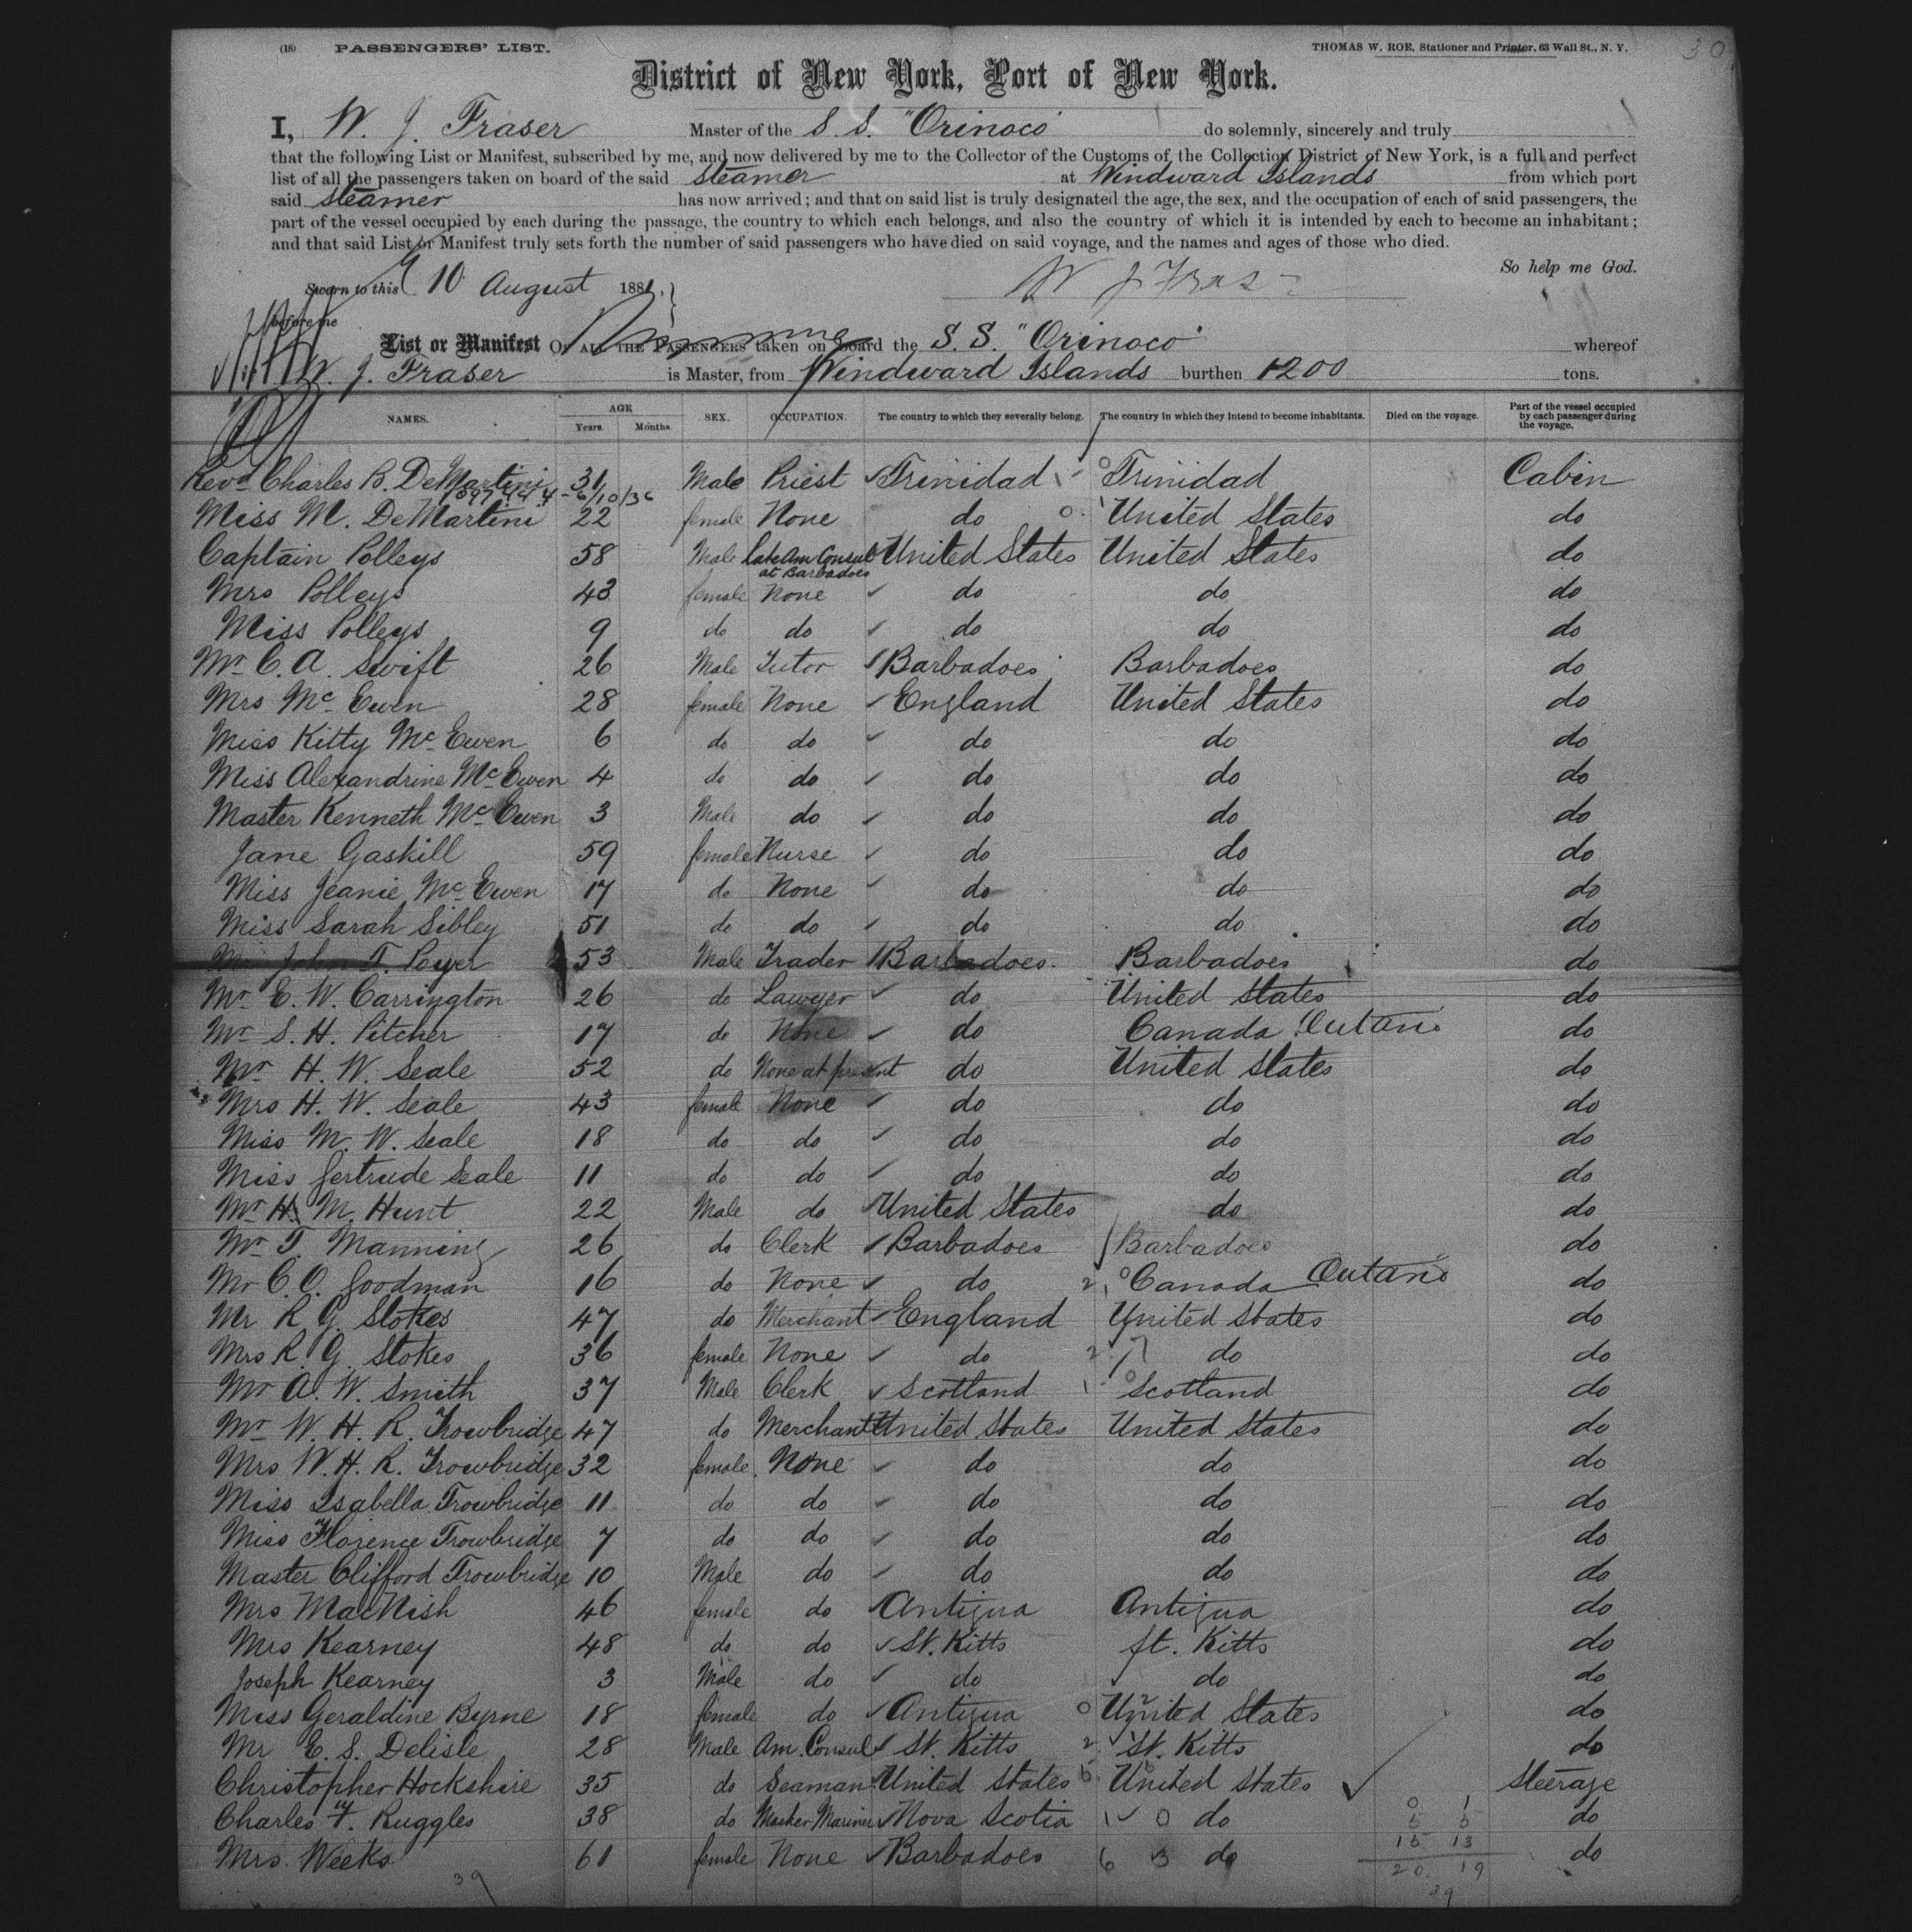 (18) PASSENGERS' LIST. THOMAS W. ROE, Stationer and Printer, 63 Wall St., N. Y. 30
District of New York, Port of New York.
I, W. J. Fraser Master of the S. S. "Orinoco" do solemnly, sincerely and truly
that the following List or Manifest, subscribed by me, and now delivered by me to the Collector of the Customs of the Collection District of New York, is a full and perfect
list of all the passengers taken on board of the said Steamer at Windward Islands from which port
said Steamer has now arrived; and that on said list is truly designated the age, the sex, and the occupation of each of said passengers, the
part of the vessel occupied by each during the passage, the country to which each belongs, and also the country of which it is intended by each to become an inhabitant;
and that said List or Manifest truly sets forth the number of said passengers who have died on said voyage, and the names and ages of those who died.
So help me God.
Sworn to this 10 August 188 W J Fras
before me
List or Manifest OF ALL THE PASSENGERS taken on board the S. S. "Orinoco" whereof
W. J. Fraser is Master, from Windward Islands burthen 1200 tons.
NAMES. AGE Years. Months SEX. OCCUPATION. The country to which they severally belong. The country in which they intend to become inhabitants. Died on the voyage. Part of the vessel occupied by each passenger during the voyage.
Revd Charles B. DeMartini 31 Male Priest Trinidad Trinidad Cabin
6/10/36
Miss M. DeMartini 22 female None do United States do
Captain Polleys 58 Male Late Am Consul at Barbadoes United States United States do
Mrs Polleys 43 female None do do do
Miss Polleys 9 do do do do do
Mr C. A. Swift 26 Male Tutor Barbadoes Barbadoes do
Mrs Mc Ewen 28 female None England United States do
Miss Kitty Mc Ewen 6 do do do do do
Miss Alexandrine Mc Ewen 4 do do do do do
Master Kenneth Mc Ewen 3 Male do do do do
Jane Gaskill 59 female Nurse do do do
Miss Jeanie Mc Ewen 17 do None do do do
Miss Sarah Sibley 51 do do do do do
Mr John T. Poyer 53 Male Trader Barbadoes Barbadoes do
Mr E. W. Carrington 26 do Lawyer do United States do
Mr S. H. Pitcher 17 do None do Canada Ontario do
Mr H. W. Seale 52 do None at present do United States do
Mrs H. W. Seale 43 female None do do do
Miss M. W. Seale 18 do do do do do
Miss Gertrude Seale 11 do do do do do
Mr H. M. Hunt 22 Male do United States do do
Mr T. Manning 26 do Clerk Barbadoes Barbadoes do
Mr C. O. Goodman 16 do None do Canada Ontario do
Mr R. G. Stokes 47 do Merchant England United States do
Mrs R. G. Stokes 36 female None do do do
Mr A. W. Smith 37 Male Clerk Scotland Scotland do
Mr W. H. R. Trowbridge 47 do Merchant United States United States do
Mrs W. H. R. Trowbridge 32 female None do do do
Miss Isabella Trowbridge 11 do do do do do
Miss Florence Trowbridge 7 do do do do do
Master Clifford Trowbridge 10 Male do do do do
Mrs MacNish 46 female do Antigua Antigua do
Mrs Kearney 48 do do St. Kitts St. Kitts do
Joseph Kearney 3 Male do do do do
Miss Geraldine Byrne 18 female do Antigua United States do
Mr E. S. Delisle 28 Male Am. Consul St. Kitts St. Kitts do
Christopher Hockshire 35 do Seaman United States United States Steerage
Charles F. Ruggles 38 do Master Mariner Nova Scotia do do
Mrs. Weeks 61 female None Barbadoes do do
0 1
5 5
15 13
20 19
39 39